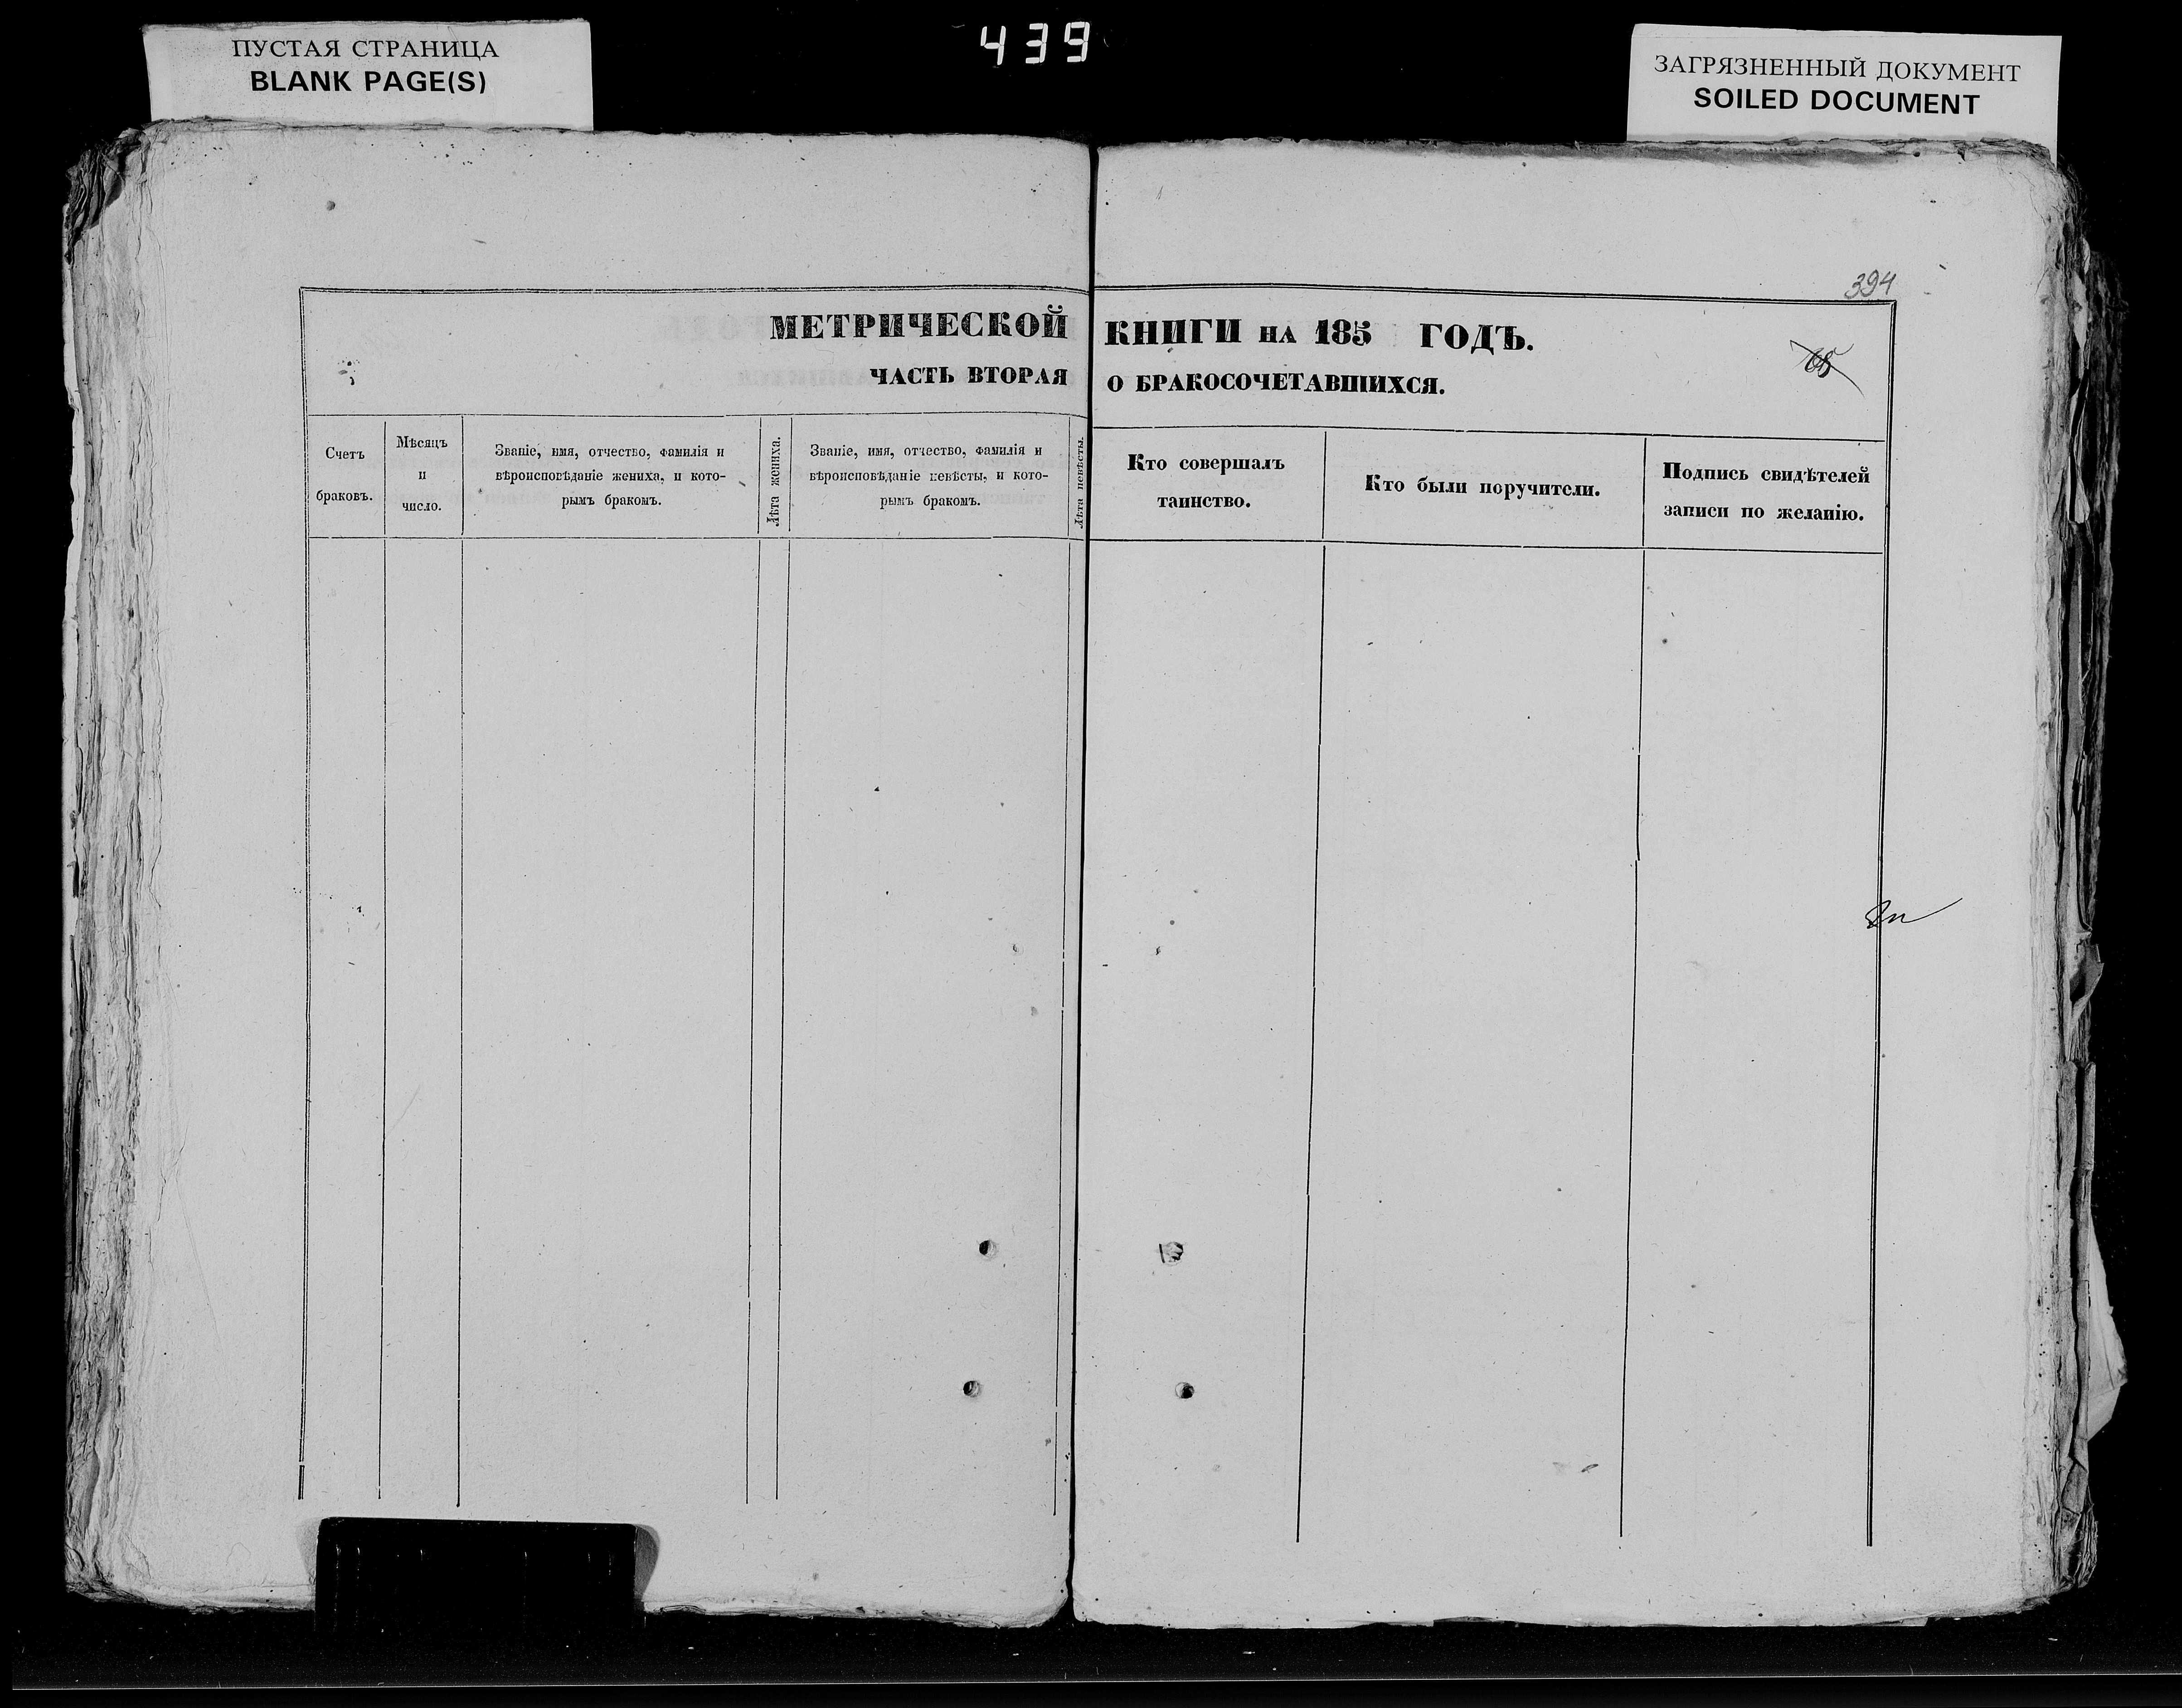 ПУСТАЯ СТРАНИЦА
BLANK PAGE(S)
439
ЗАГРЯЗНЕННЫЙ ДОКУМЕНТ
SOILED DOCUMENT
394
МЕТРИЧЕСКОЙ КНИГИ НА 185 ГОДЪ.
ЧАСТЬ ВТОРАЯ О БРАКОСОЧЕТАВШИХСЯ.
Счетъ
браковъ.
Мѣсяцъ
и
число.
Званіе, имя, отчество, фамилія и
вѣроисповѣданіе жениха, и кото-
рымъ бракомъ.
Лѣта жениха.
Званіе, имя, отчество, фамилія и
вѣроисповѣданіе невѣсты, и кото-
рымъ бракомъ.
Лѣта невѣсты.
Кто совершалъ
таинство.
Кто были поручители.
Подпись свидѣтелей
записи по желанію.